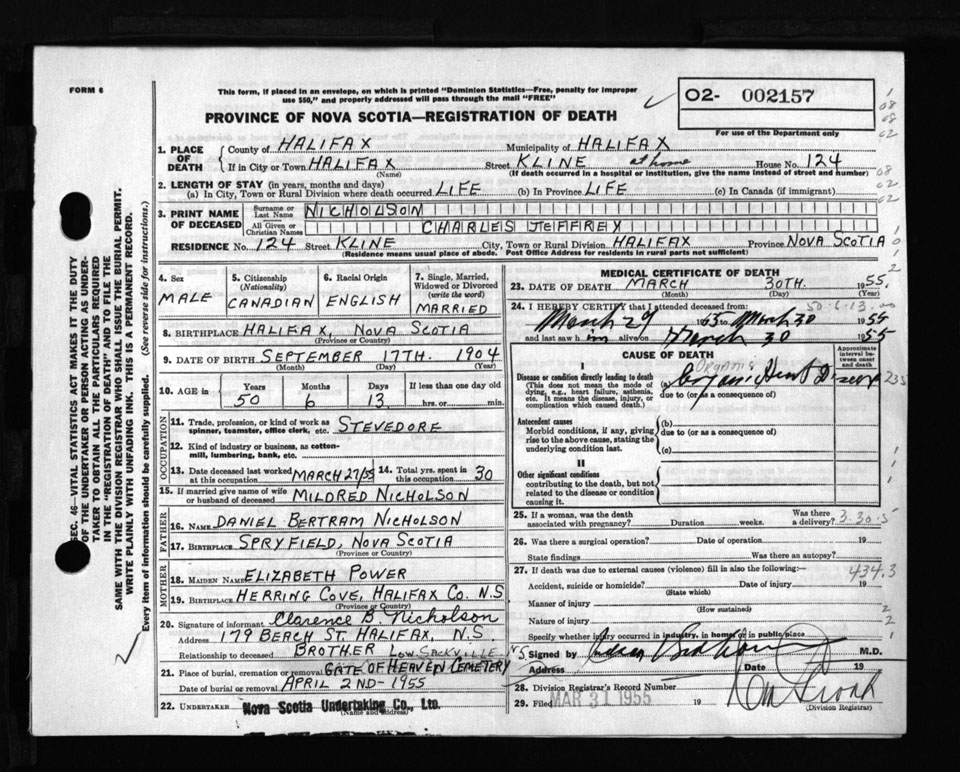 FORM 6
This form, if placed in an envelope, on which is printed "Dominion Statistics—Free, penalty for improper
use $50," and properly addressed will pass through the mail "FREE"
PROVINCE OF NOVA SCOTIA—REGISTRATION OF DEATH
02- 002157
For use of the Department only
1. PLACE OF DEATH County of HALIFAX Municipality of HALIFAX
If in City or Town HALIFAX (Name) Street KLINE at home House No. 124
(If death occurred in a hospital or institution, give the name instead of street and number)
2. LENGTH OF STAY (in years, months and days)
(a) In City, Town or Rural Division where death occurred LIFE (b) In Province LIFE (c) In Canada (if immigrant)
3. PRINT NAME OF DECEASED Surname or Last Name NICHOLSON
All Given or Christian Names CHARLES JEFFREY
RESIDENCE No. 124 Street KLINE City, Town or Rural Division HALIFAX Province NOVA SCOTIA
(Residence means usual place of abode. Post Office Address for residents in rural parts not sufficient)
4. Sex MALE
5. Citizenship (Nationality) CANADIAN
6. Racial Origin ENGLISH
7. Single, Married, Widowed or Divorced (write the word) MARRIED
8. BIRTHPLACE HALIFAX, NOVA SCOTIA
(Province or Country)
9. DATE OF BIRTH SEPTEMBER 17TH. 1904
(Month) (Day) (Year)
10. AGE in Years 50 Months 6 Days 13 If less than one day old hrs. or min.
OCCUPATION
11. Trade, profession, or kind of work as spinner, teamster, office clerk, etc. STEVEDORE
12. Kind of industry or business, as cotton-mill, lumbering, bank, etc.
13. Date deceased last worked at this occupation MARCH 27/55 14. Total yrs. spent in this occupation 30
15. If married give name of wife or husband of deceased MILDRED NICHOLSON
FATHER
16. NAME DANIEL BERTRAM NICHOLSON
17. BIRTHPLACE SPRYFIELD, NOVA SCOTIA
(Province or Country)
MOTHER
18. MAIDEN NAME ELIZABETH POWER
19. BIRTHPLACE HERRING COVE, HALIFAX CO. N.S
(Province or Country)
20. Signature of informant Clarence B. Nicholson
Address 179 BEACH ST. HALIFAX, N.S.
Relationship to deceased BROTHER
LOW. SACKVILLE
21. Place of burial, cremation or removal GATE OF HEAVEN CEMETERY
Date of burial or removal APRIL 2ND-1955
22. UNDERTAKER Nova Scotia Undertaking Co., Ltd.
(Name and Address)
MEDICAL CERTIFICATE OF DEATH
23. DATE OF DEATH MARCH 30TH. 1955
(Month) (Day) (Year)
24. I HEREBY CERTIFY that I attended deceased from: 50-6-13
March 29 1955 to March 30 1955
and last saw him alive on March 30 1955
CAUSE OF DEATH
Approximate interval between onset and death
I
Disease or condition directly leading to death
(This does not mean the mode of dying, e.g., heart failure, asthenia, etc. It means the disease, injury, or complication which caused death.)
Organic
(a) Organic Heart Disease
due to (or as a consequence of)
Antecedent causes
Morbid conditions, if any, giving rise to the above cause, stating the underlying condition last.
(b)
due to (or as a consequence of)
(c)
II
Other significant conditions
contributing to the death, but not related to the disease or condition causing it.
25. If a woman, was the death associated with pregnancy? Duration weeks. Was there a delivery? 3-30-5
26. Was there a surgical operation? Date of operation 19
State findings Was there an autopsy?
27. If death was due to external causes (violence) fill in also the following: 434.3
Accident, suicide or homicide? Date of injury 19
(State which)
Manner of injury
(How sustained)
Nature of injury
Specify whether injury occurred in industry, in home or in public place
Signed by M.D.
Address Date 19
28. Division Registrar's Record Number
29. Filed MAR 31 1955 19
(Division Registrar)
SEC. 46—VITAL STATISTICS ACT MAKES IT THE DUTY
OF THE UNDERTAKER OR PERSON ACTING AS UNDER-
TAKER TO OBTAIN ALL THE PARTICULARS REQUIRED
IN THE "REGISTRATION OF DEATH" AND TO FILE THE
SAME WITH THE DIVISION REGISTRAR WHO SHALL ISSUE THE BURIAL PERMIT.
WRITE PLAINLY WITH UNFADING INK. THIS IS A PERMANENT RECORD.
Every item of information should be carefully supplied. (See reverse side for instructions.)